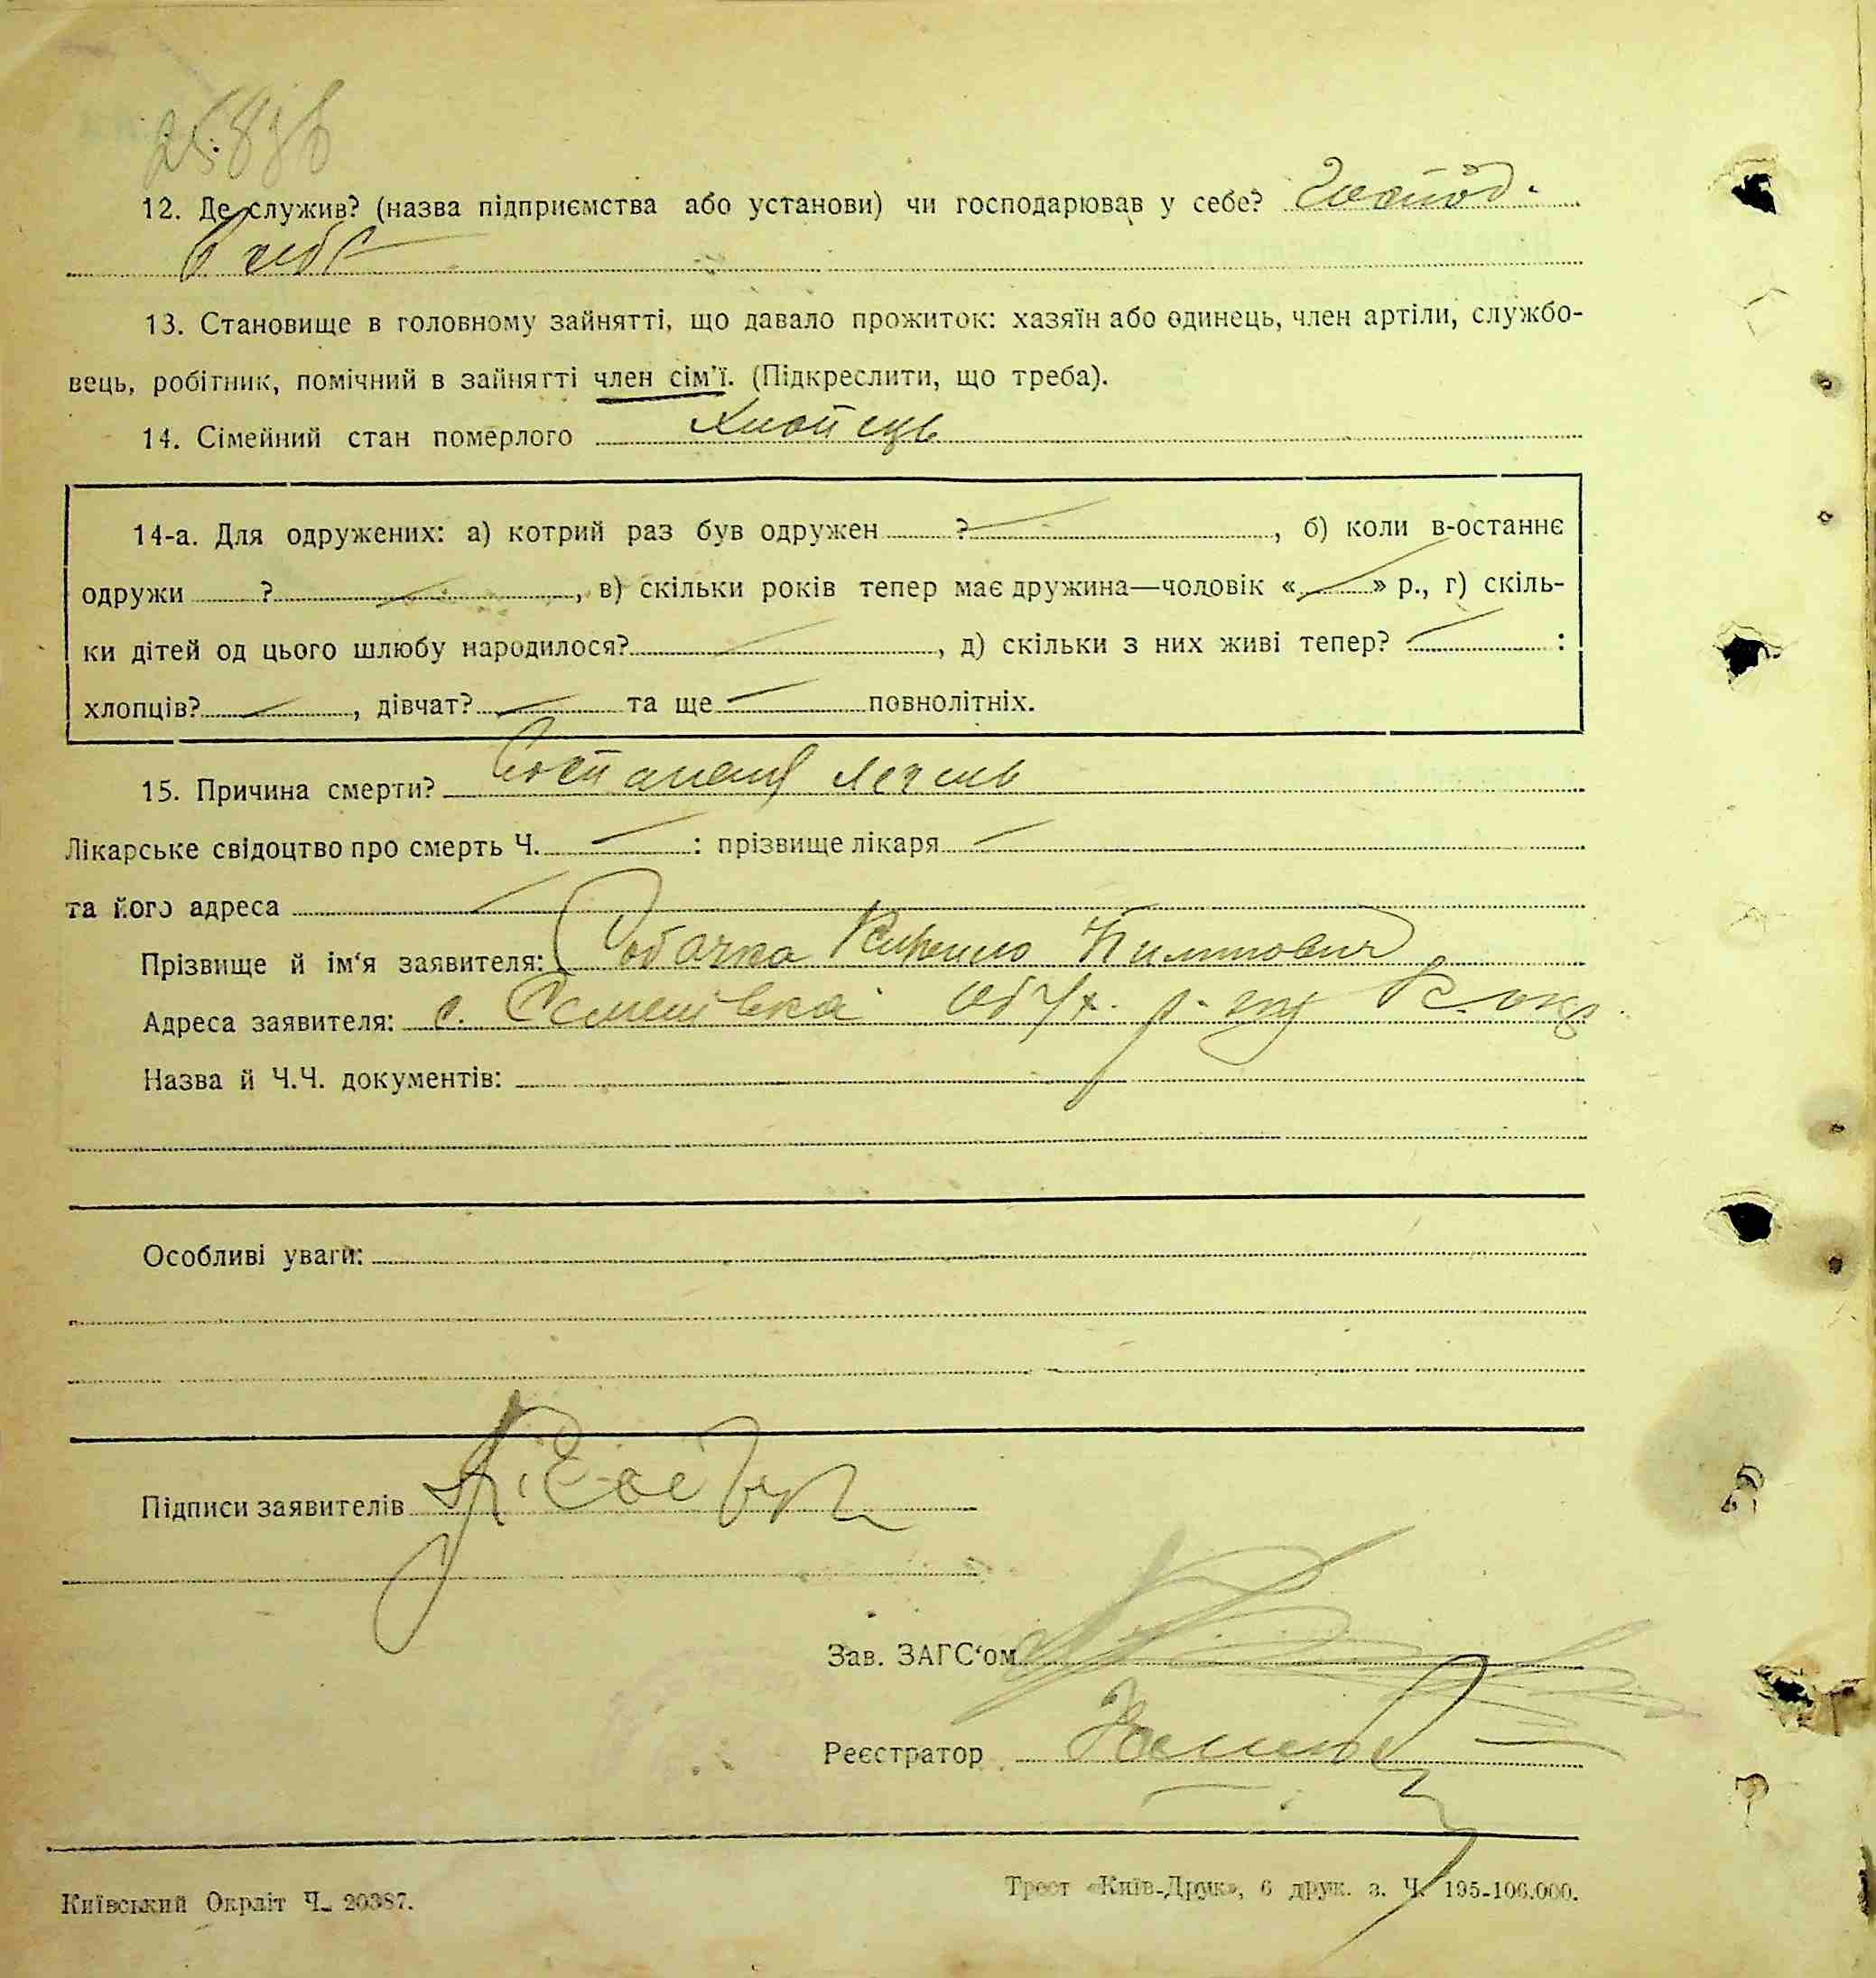 12. Де служив? (назва підприємства або установи) чи господарював у себе? Господ.
в себе
13. Становище в головному зайнятті, що давало прожиток: хазяїн або одинець, член артіли, службо-
вець, робітник, помічний в зайнятті член сім'ї. (Підкреслити, що треба).
14. Сімейний стан померлого хлопець
14-а. Для одружених: а) котрий раз був одружен ?, б) коли в-останнє
одружи ?, в) скільки років тепер має дружина—чоловік « » р., г) скіль-
ки дітей од цього шлюбу народилося?, д) скільки з них живі тепер? :
хлопців?, дівчат? та ще повнолітніх.
15. Причина смерти? Воспаления легень
Лікарське свідоцтво про смерть Ч. : прізвище лікаря
та його адреса
Прізвище й ім'я заявителя: Собачка Кирило Пилипович
Адреса заявителя: с. Семенівка Обух. р-ну К. окр.
Назва й Ч.Ч. документів:
Особливі уваги:
Підписи заявителів
Зав. ЗАГС'ом
Реєстратор
Київський Окрліт Ч. 20387.
Трест «Київ-Друк», 6 друк. з. Ч. 195-106.000.